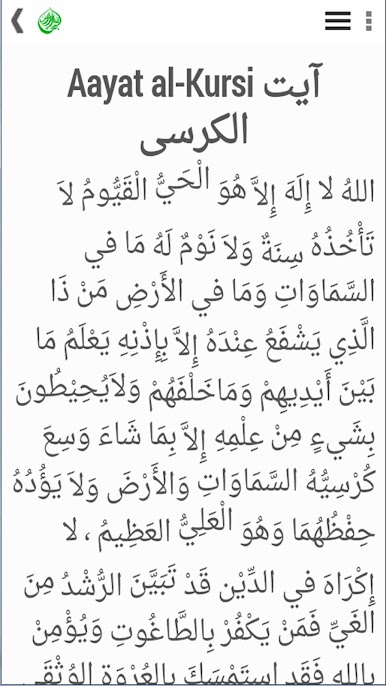 Aayat al-Kursi آيت
الكرسى
اللهُ لا إِلَهَ إِلاَّ هُوَ الْحَيُّ الْقَيُّومُ لاَ
تَأْخُذُهُ سِنَةٌ وَلاَ نَوْمٌ لَهُ مَا في
السَّمَاوَاتِ وَمَا في الأَرْضِ مَنْ ذَا
الَّذِي يَشْفَعُ عِنْدَهُ إِلاَّ بِإِذْنِهِ يَعْلَمُ مَا
بَيْنَ أَيْدِيهِمْ وَمَاخَلْفَهُمْ وَلاَيُحِيْطُونَ
بِشَيءٍ مِنْ عِلْمِهِ إِلاَّ بِمَا شَاءَ وَسِعَ
كُرْسِيُّهُ السَّمَاوَاتِ وَالأَرْضَ وَلاَ يَؤُدُهُ
حِفْظُهُمَا وَهُوَ الْعَلِيُّ العَظِيمُ ، لا
إِكْرَاهَ في الدِّيْنِ قَدْ تَبَيَّنَ الرُّشْدُ مِنَ
الغَيِّ فَمَنْ يَكْفُرْ بِالطَّاغُوتِ وَيُؤْمِنْ
بِاللهِ فَقَدِ اسْتَمْسَكَ بِالعُرْوَةِ الوُثْقَى